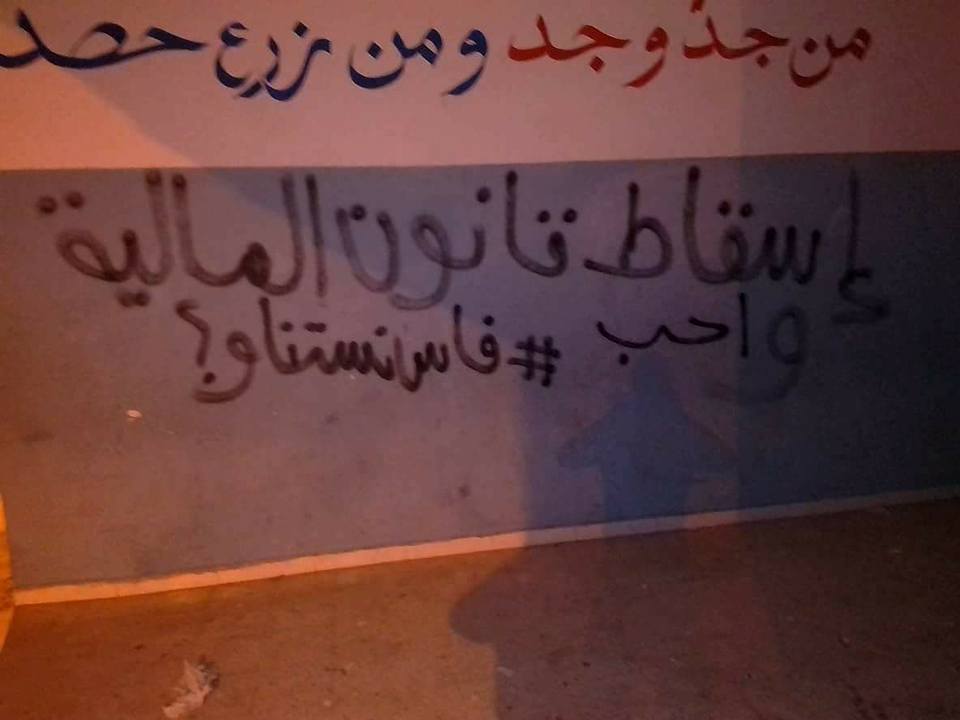 من جدّ وجد ومن زرع حصد
إسقاط قانون المالية
واحب #فاس نستناو؟